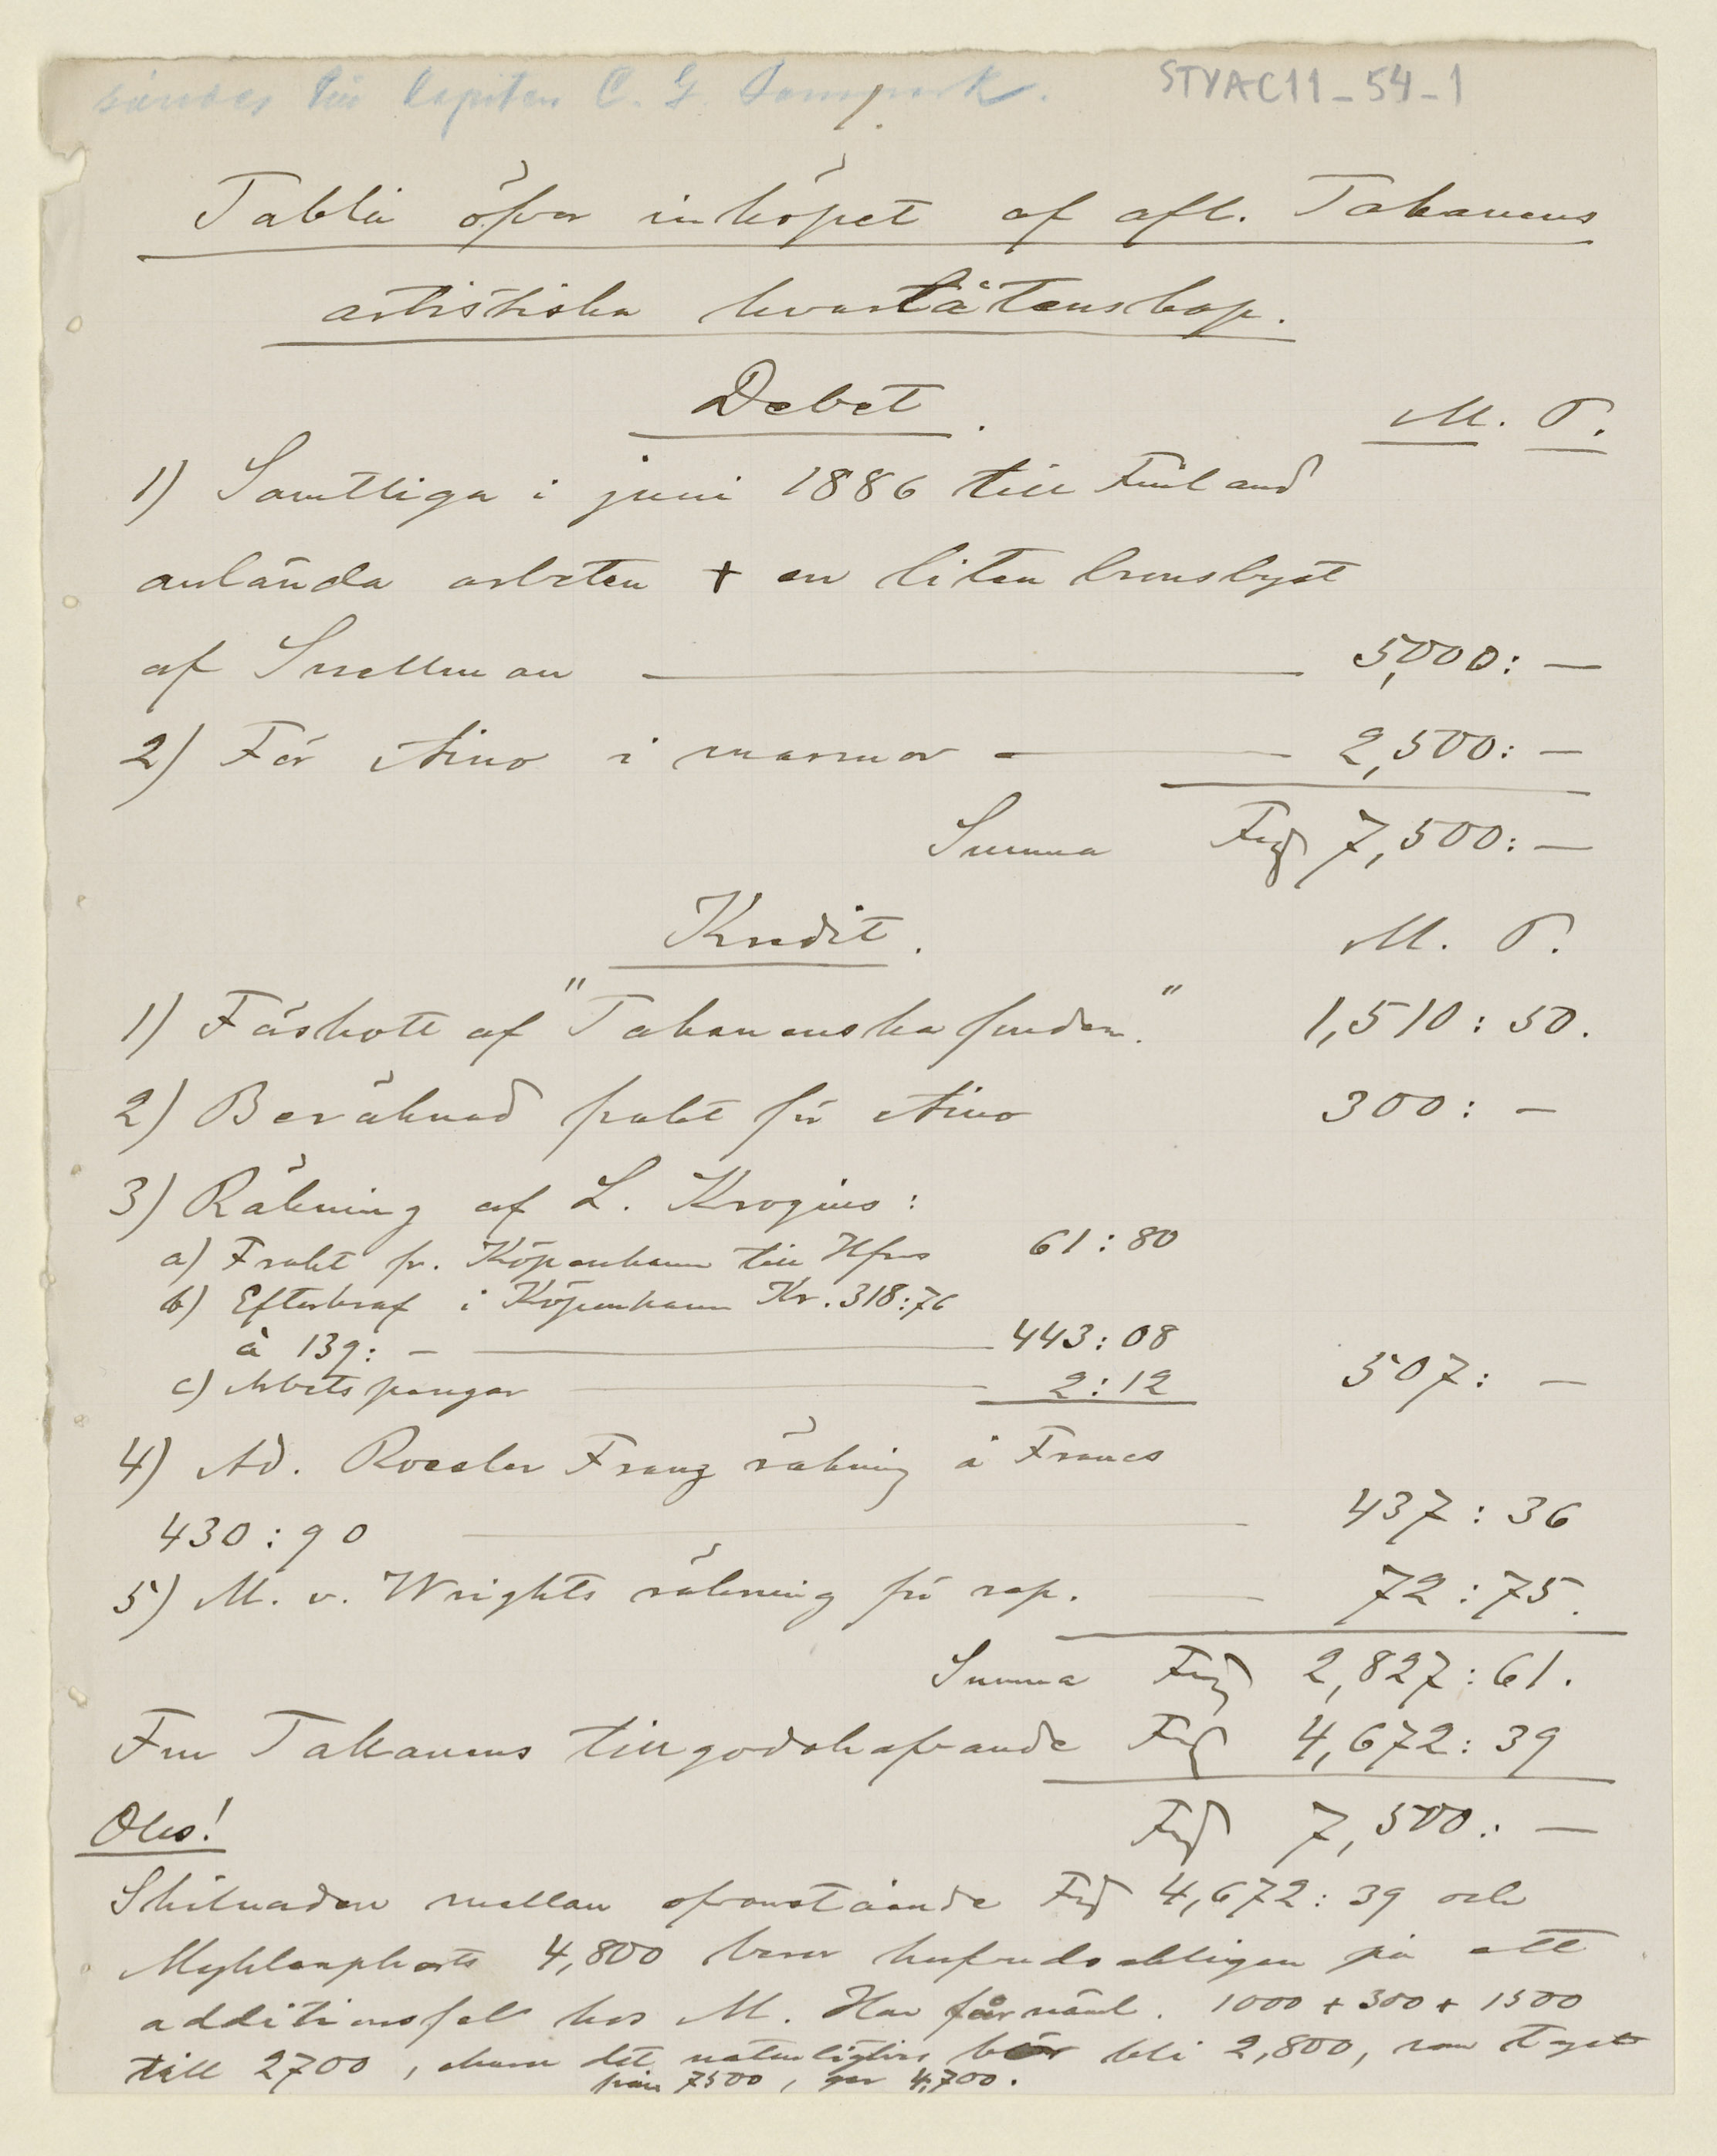 sändes till kapiten C. G.
STYAC11_54_1
1.
Tablå öfver inköpet af afl. Takanens
artistiska kvarlåtenskap.
Debet.
M. P.
1) Samtliga i juni 1886 till Finland
anlända arbeten + en liten bronsbyst
af Snellman — 5,000: —
2) För Aino i marmor — 2,500: —
Summa Fmf 7,500: —
Kredit.
M. P.
1) Förskott af "Takanenska fonden." 1,510: 50.
2) Beräknad frakt för Aino 300: —
3) Räkning af L. Krogius:
a) Frakt fr. Köpenhamn till Hfrs 61: 80
b) Efterkraf i Köpenhamn Kr. 318:76
à 139: — 443: 08
c) Arbetspengar — 2: 12 507: —
4) Ad. Roesler Franz räkning å Francs
430: 90 — 437: 36
5) M. v. Wrights räkning för rep. — 72: 75.
Summa Fmf 2,827: 61.
Fru Takanens tillgodohafvande Fmf 4,672: 39
Fmf 7,500: —
Obs!
Skilnaden mellan ofvanstående Fmf 4,672: 39 och
4,800 beror hufvudsakligen på ett
additionsfel hos M. Han får näml. 1000 + 300 + 1500
till 2700, ehuru det naturligtvis bör bli 2,800, som
från 7500, ger 4,700.